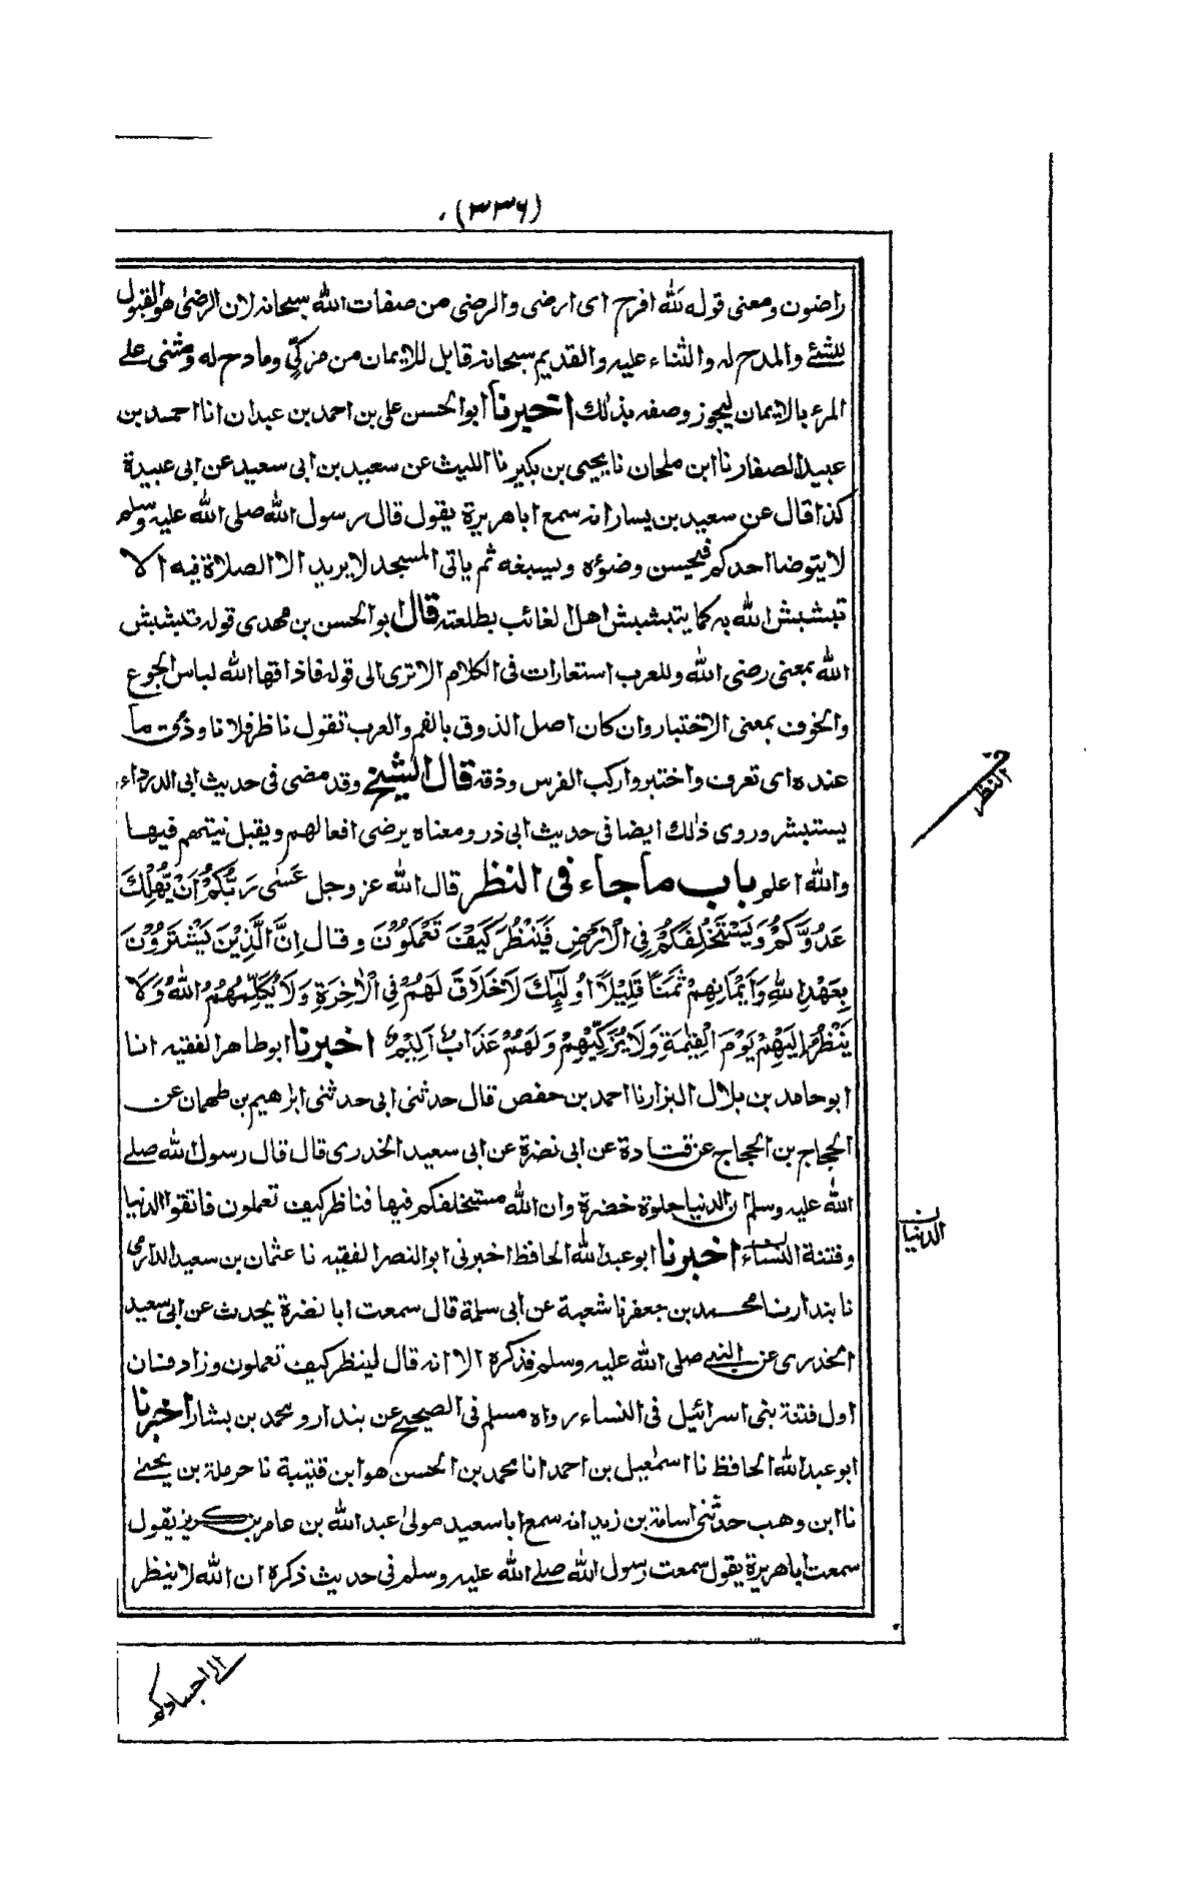 (٣٣٦)
راضون ومعنى قوله لله افرح اى ارضى والرضى من صفات الله سبحانه لان الرضى هو القبول
للشئ والمدح له والثناء عليه والقديم سبحانه قابل للايمان من مزكّي ومادح له ومثنى على
المرء بالايمان فيجوز وصفه بذلك اخبرنا ابوالحسن على بن احمد بن عبدان انا احمد بن
عبيد الصفار نا ابن ملحان نا يحيى بن بكير نا الليث عن سعيد بن ابى سعيد عن ابى عبيدة
كذا قال عن سعيد بن يسار انه سمع اباهريرة يقول قال رسول الله صلى الله عليه وسلم
لا يتوضا احدكم فيحسن وضوءه ويسبغه ثم ياتى المسجد لا يريد الا الصلاة فيه الا
تبشبش الله به كما يتبشبش اهل الغائب بطلعته قال ابو الحسن بن مهدى قوله تبشبش
الله بمعنى رضى الله وللعرب استعارات فى الكلام الا ترى الى قوله فاذاقها الله لباس الجوع
والخوف بمعنى الاختبار وان كان اصل الذوق بالفم والعرب تقول ناظر فلانا وذق ما
عنده اى تعرف واختبر واركب الفرس وذقه قال الشيخ وقد مضى فى حديث ابى الدرداء
يستبشر وروى ذلك ايضا فى حديث ابى ذر ومعناه يرضى افعالهم ويقبل نيتهم فيها
والله اعلم باب ماجاء فى النظر قال الله عز وجل عَسٰى رَبُّكُمْ اَنْ يُّهْلِكَ
عَدُوَّكُمْ وَيَسْتَخْلِفَكُمْ فِي الْاَرْضِ فَيَنْظُرَ كَيْفَ تَعْمَلُوْنَ وقال اِنَّ الَّذِيْنَ يَشْتَرُوْنَ
بِعَهْدِ اللّٰهِ وَاَيْمَانِهِمْ ثَمَنًا قَلِيْلًا اُولٰٓئِكَ لَاخَلَاقَ لَهُمْ فِي الْاٰخِرَةِ وَلَا يُكَلِّمُهُمُ اللّٰهُ وَلَا
يَنْظُرُ اِلَيْهِمْ يَوْمَ الْقِيٰمَةِ وَلَا يُزَكِّيْهِمْ وَلَهُمْ عَذَابٌ اَلِيْمٌ اخبرنا ابوطاهر الفقيه انا
ابوحامد بن بلال البزار نا احمد بن حفص قال حدثنى ابى حدثنى ابراهيم بن طهمان عن
الحجاج بن الحجاج عن قتادة عن ابى نضرة عن ابى سعيد الخدرى قال قال رسول الله صلے
الله عليه وسلم ان الدنيا حلوة خضرة وان الله مستخلفكم فيها فناظر كيف تعملون فاتقوا الدنيا
وفتنة النساء اخبرنا ابو عبد الله الحافظ اخبرنى ابو النصر الفقيه نا عثمان بن سعيد الدارمى
نا بندار نا محمد بن جعفر نا شعبة عن ابى سلمة قال سمعت ابا نضرة يحدث عن ابى سعيد
الخدرى عن النبى صلى الله عليه وسلم فذكره الا انه قال لينظر كيف تعملون وزاد فان
اول فتنة بنى اسرائيل فى النساء رواه مسلم فى الصحيح عن بندار و محمد بن بشار اخبرنا
ابو عبد الله الحافظ نا اسمعيل بن احمد انا محمد بن الحسن هو ابن قتيبة نا حرملة بن يحيے
نا ابن وهب حدثنى اسامة بن زيد انه سمع اباسعيد مولى عبد الله بن عامر بن كريز يقول
سمعت اباهريرة يقول سمعت رسول الله صلے الله عليه وسلم فى حديث ذكره ان الله لا ينظر
النظر
الدنيا ن
الى اجسادكم